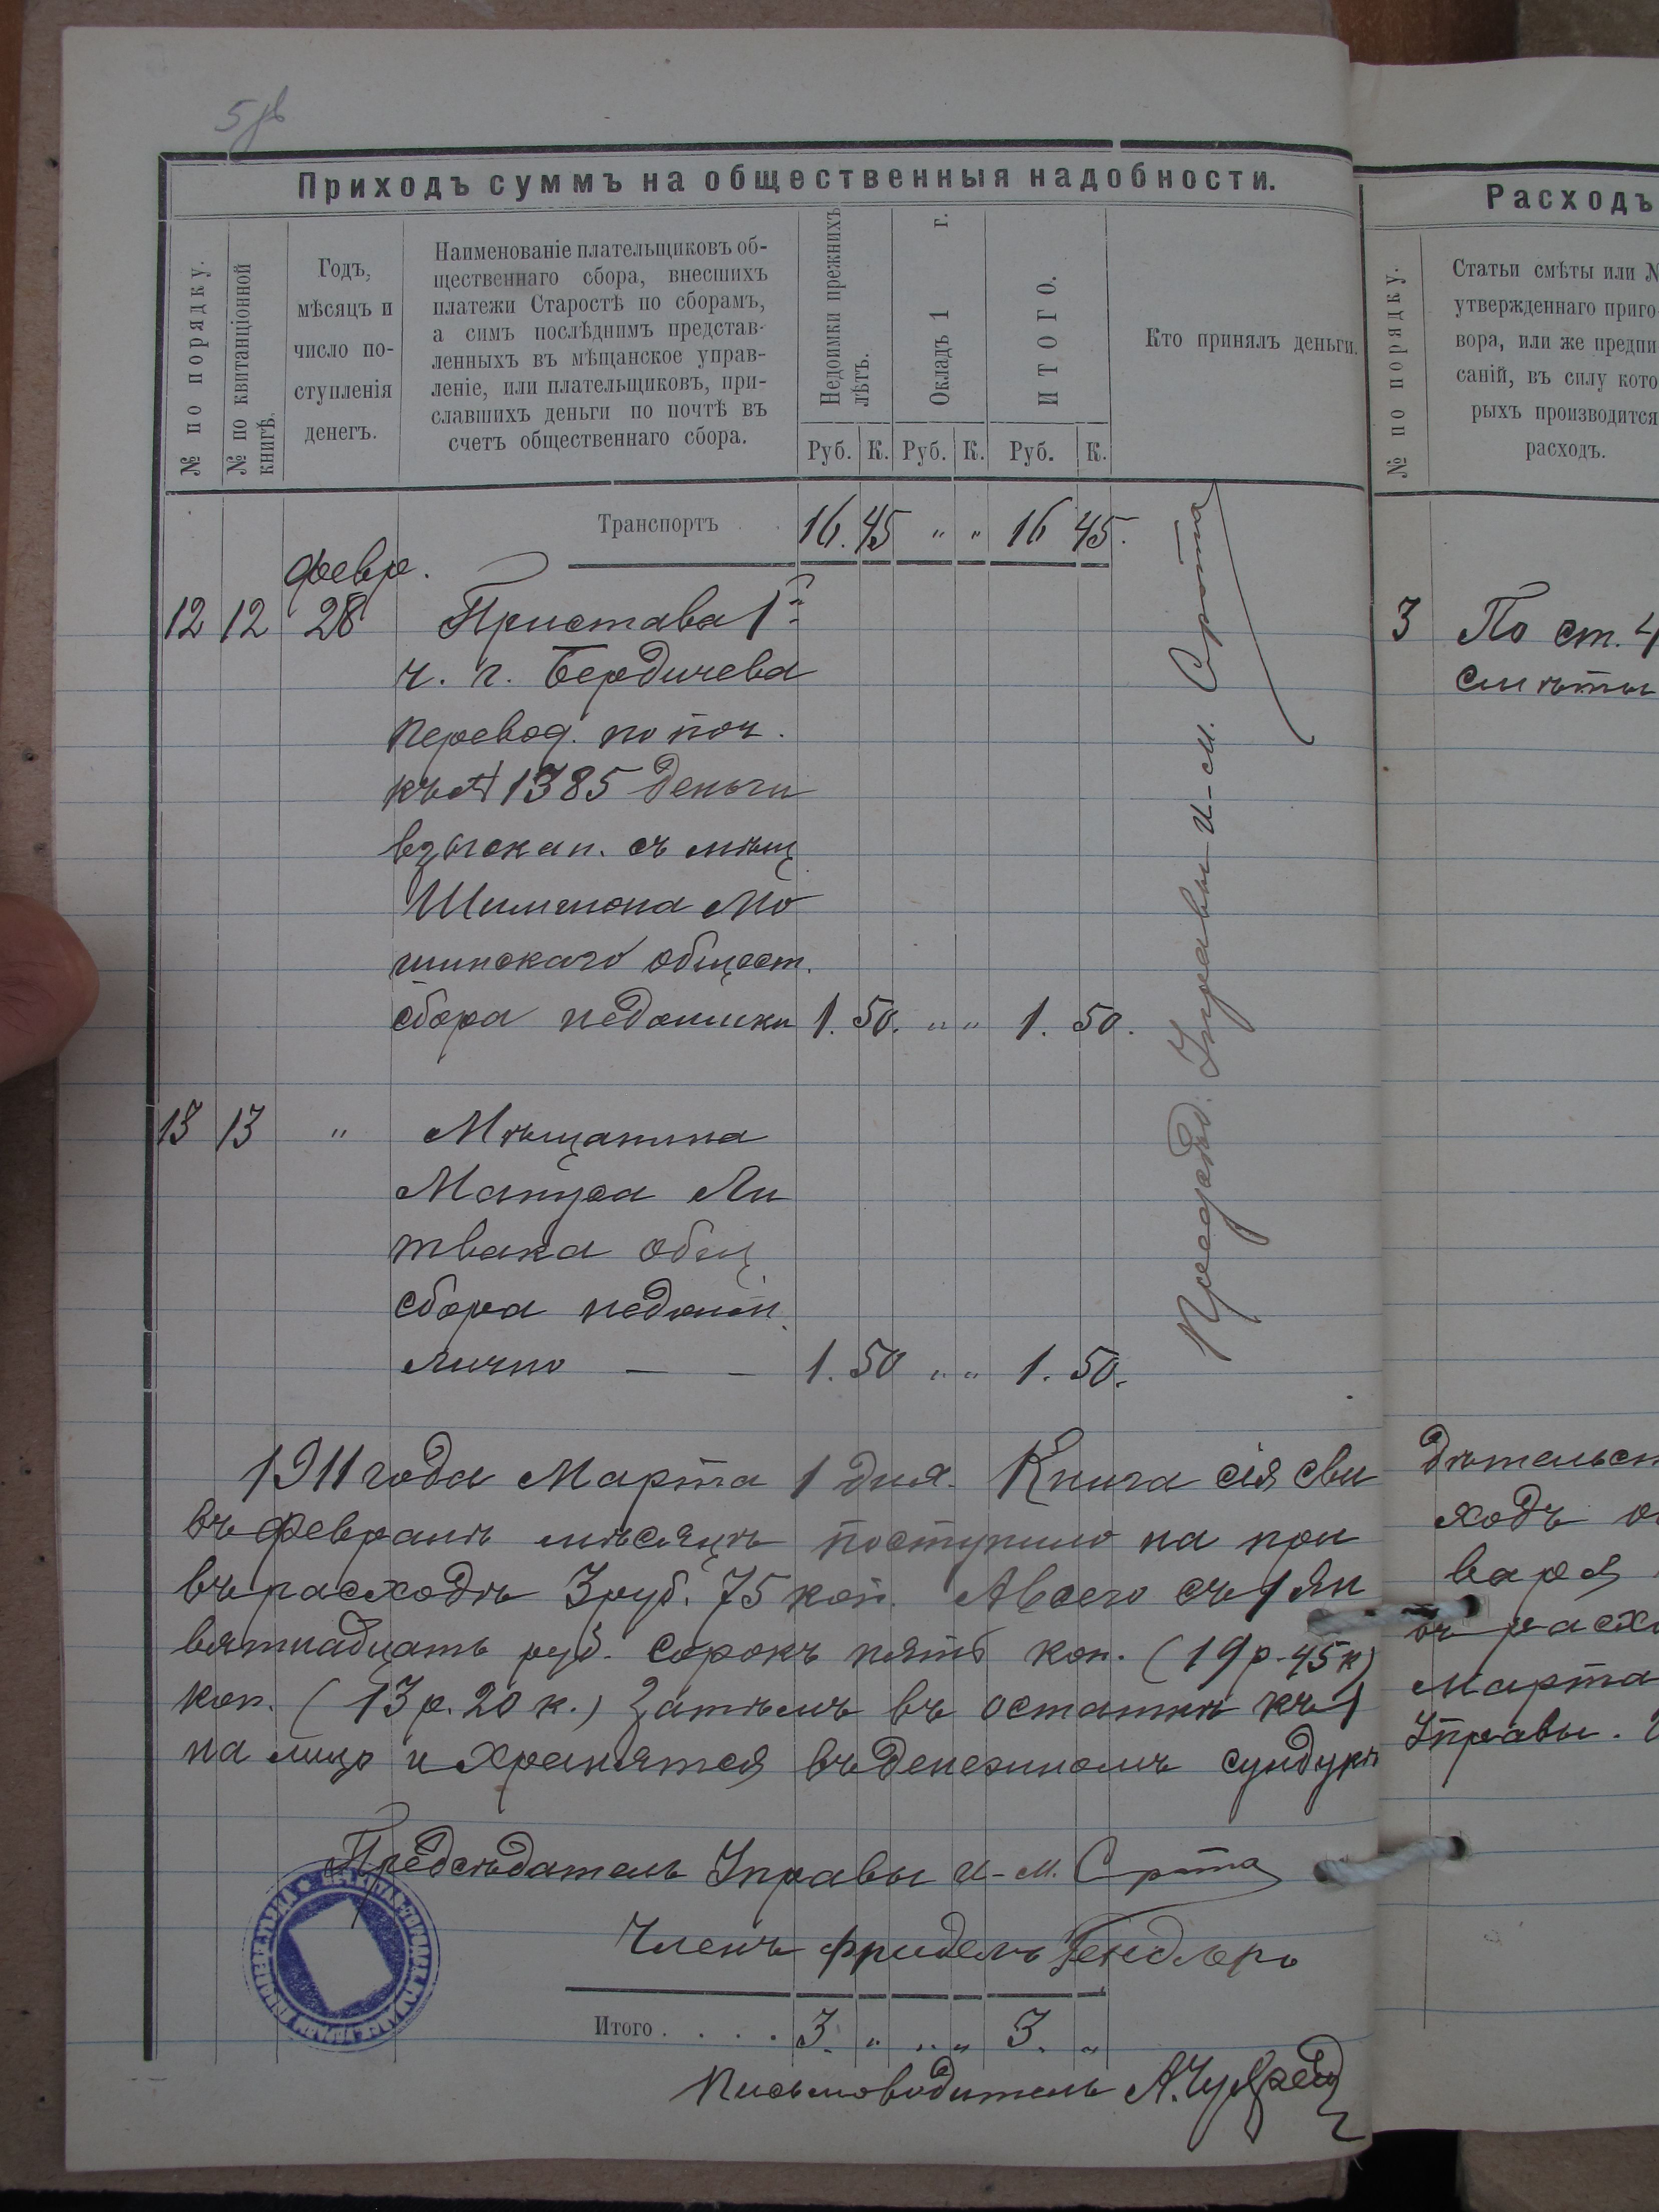 Приходъ суммъ на общественныя надобности.
№ по порядку.
№ по квитанціонной книгѣ.
Годъ,
мѣсяцъ и
число по-
ступленія
денегъ.
Наименованіе плательщиковъ об-
щественнаго сбора, внесшихъ
платежи Старостѣ по сборамъ,
а симъ послѣднимъ представ-
ленныхъ въ мѣщанское управ-
леніе, или плательщиковъ, при-
славшихъ деньги по почтѣ въ
счетъ общественнаго сбора.
Недоимки прежнихъ
лѣтъ.
Окладъ 1 г.
ИТОГО.
Руб. К. Руб. К. Руб. К.
Кто принялъ деньги.
Транспортъ 16. 45 " " 16 45.
Февр.
12 12 28 Пристава 1й
ч. г. Бердичева
перевод. по поч.
къ № 1385 деньги
взыскан. съ мѣщ.
Шимона Мо
шинскаго общест.
сбора недоимки 1. 50. " " 1. 50.
13 13 " Мѣщанина
Мануса Ли
твака общ.
сбора недоим.
лично — — 1. 50 " " 1. 50.
Председ. Управы И-М. Срота
1911 года Марта 1 дня. Книга сія сви
въ Февралѣ мѣсяцѣ поступило на при
въ расходѣ 3 руб. 75 коп. А всего съ 1 Ян
вятнадцать руб. сорокъ пять коп. (19 р. 45 к)
коп. (13 р. 20 к.) Затѣмъ въ остаткѣ къ 1
на лицо и хранятся въ денежномъ сундукѣ
Предсѣдатель Управы И-М. Срота
Членъ Фридель Гендлеръ
Итого . . . . 3. " " " 3. "
Письмоводитель А.
Расходъ
№ по порядку.
Статьи смѣты или №
утвержденнаго приго
вора, или же предпи
саній, въ силу кото
рыхъ производится
расходъ.
3 По ст. 4
смѣты
дѣтельст
ходъ
варя
въ расхо
Марта
Управы.